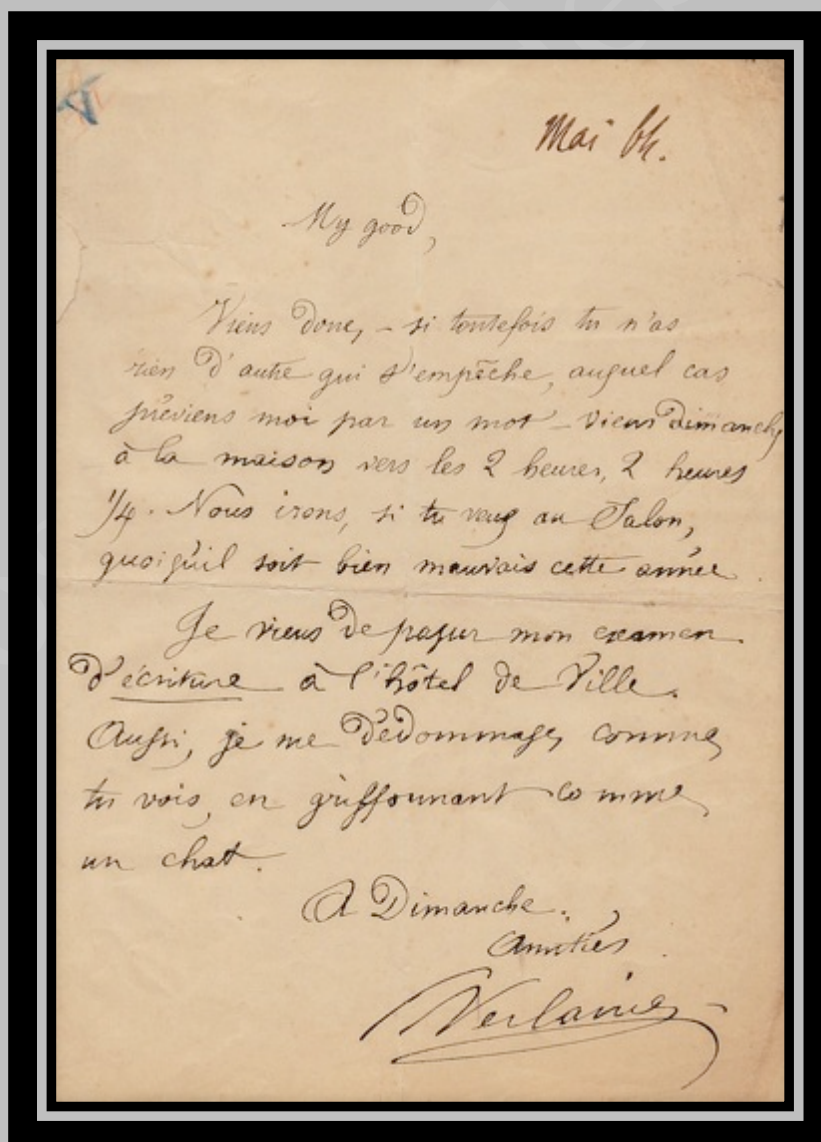 Mai 64.
My good,
Viens donc, – si toutefois tu n'as
rien d'autre qui t'empêche, auquel cas
préviens moi par un mot – viens Dimanche
à la maison vers les 2 heures, 2 heures
1/4. Nous irons, si tu veux au Salon,
quoiqu'il soit bien mauvais cette année.
Je viens de passer mon examen
d'écriture à l'hôtel de Ville.
Aussi, je me dédommage, comme
tu vois, en griffonnant comme
un chat.
A Dimanche.
Amitiés.
Verlaine